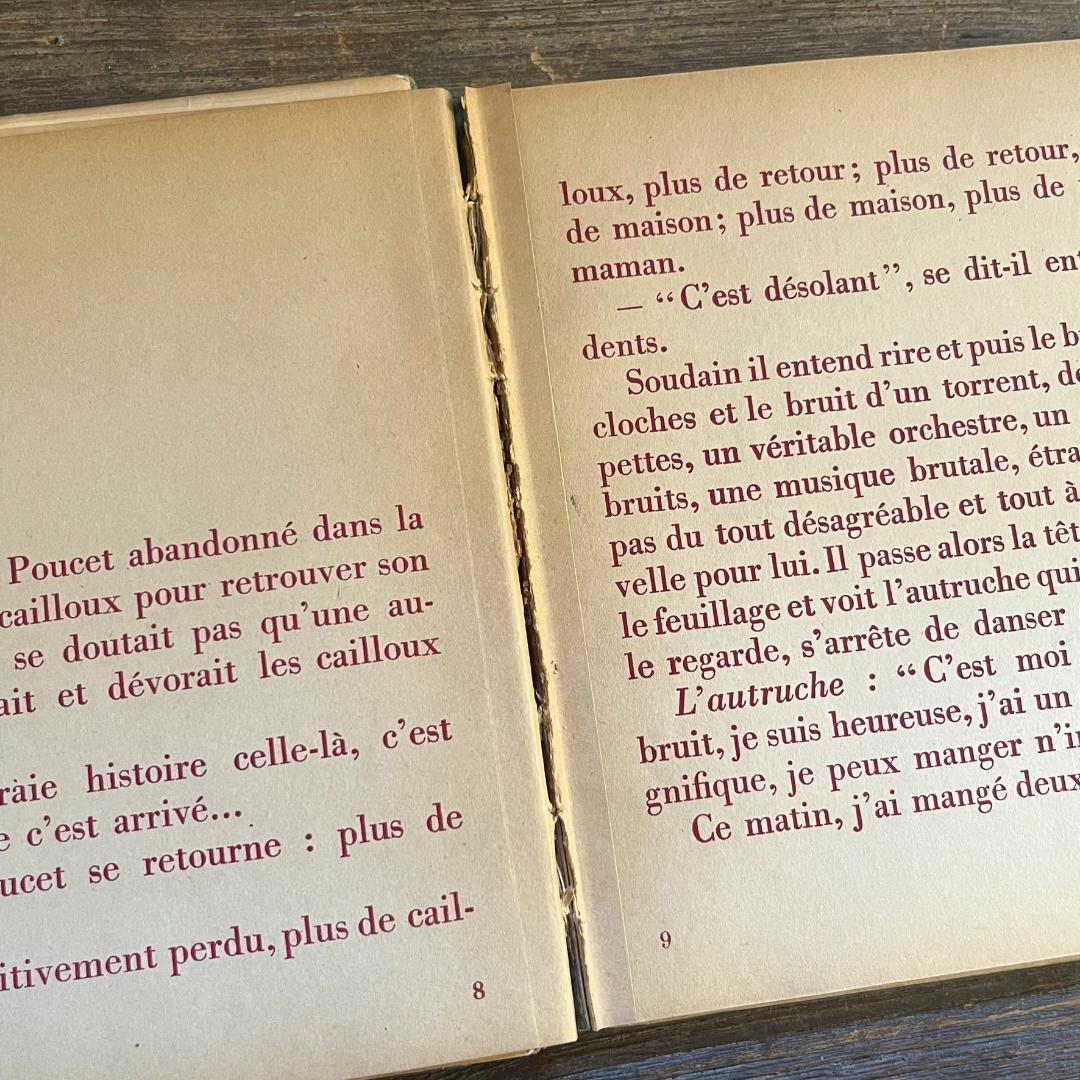 Poucet abandonné dans la
cailloux pour retrouver son
se doutait pas qu'une au-
ait et dévorait les cailloux
histoire celle-là, c'est
c'est arrivé...
ucet se retourne : plus de
itivement perdu, plus de cail-
8
loux, plus de retour; plus de retour,
de maison; plus de maison, plus de
maman.
— “C'est désolant”, se dit-il ent
dents.
Soudain il entend rire et puis le b
cloches et le bruit d'un torrent, de
pettes, un véritable orchestre, un
bruits, une musique brutale, étra
pas du tout désagréable et tout à
velle pour lui. Il passe alors la têt
le feuillage et voit l'autruche qui
le regarde, s'arrête de danser
L'autruche : “C'est moi
bruit, je suis heureuse, j'ai un
gnifique, je peux manger n'i
Ce matin, j'ai mangé deux
9